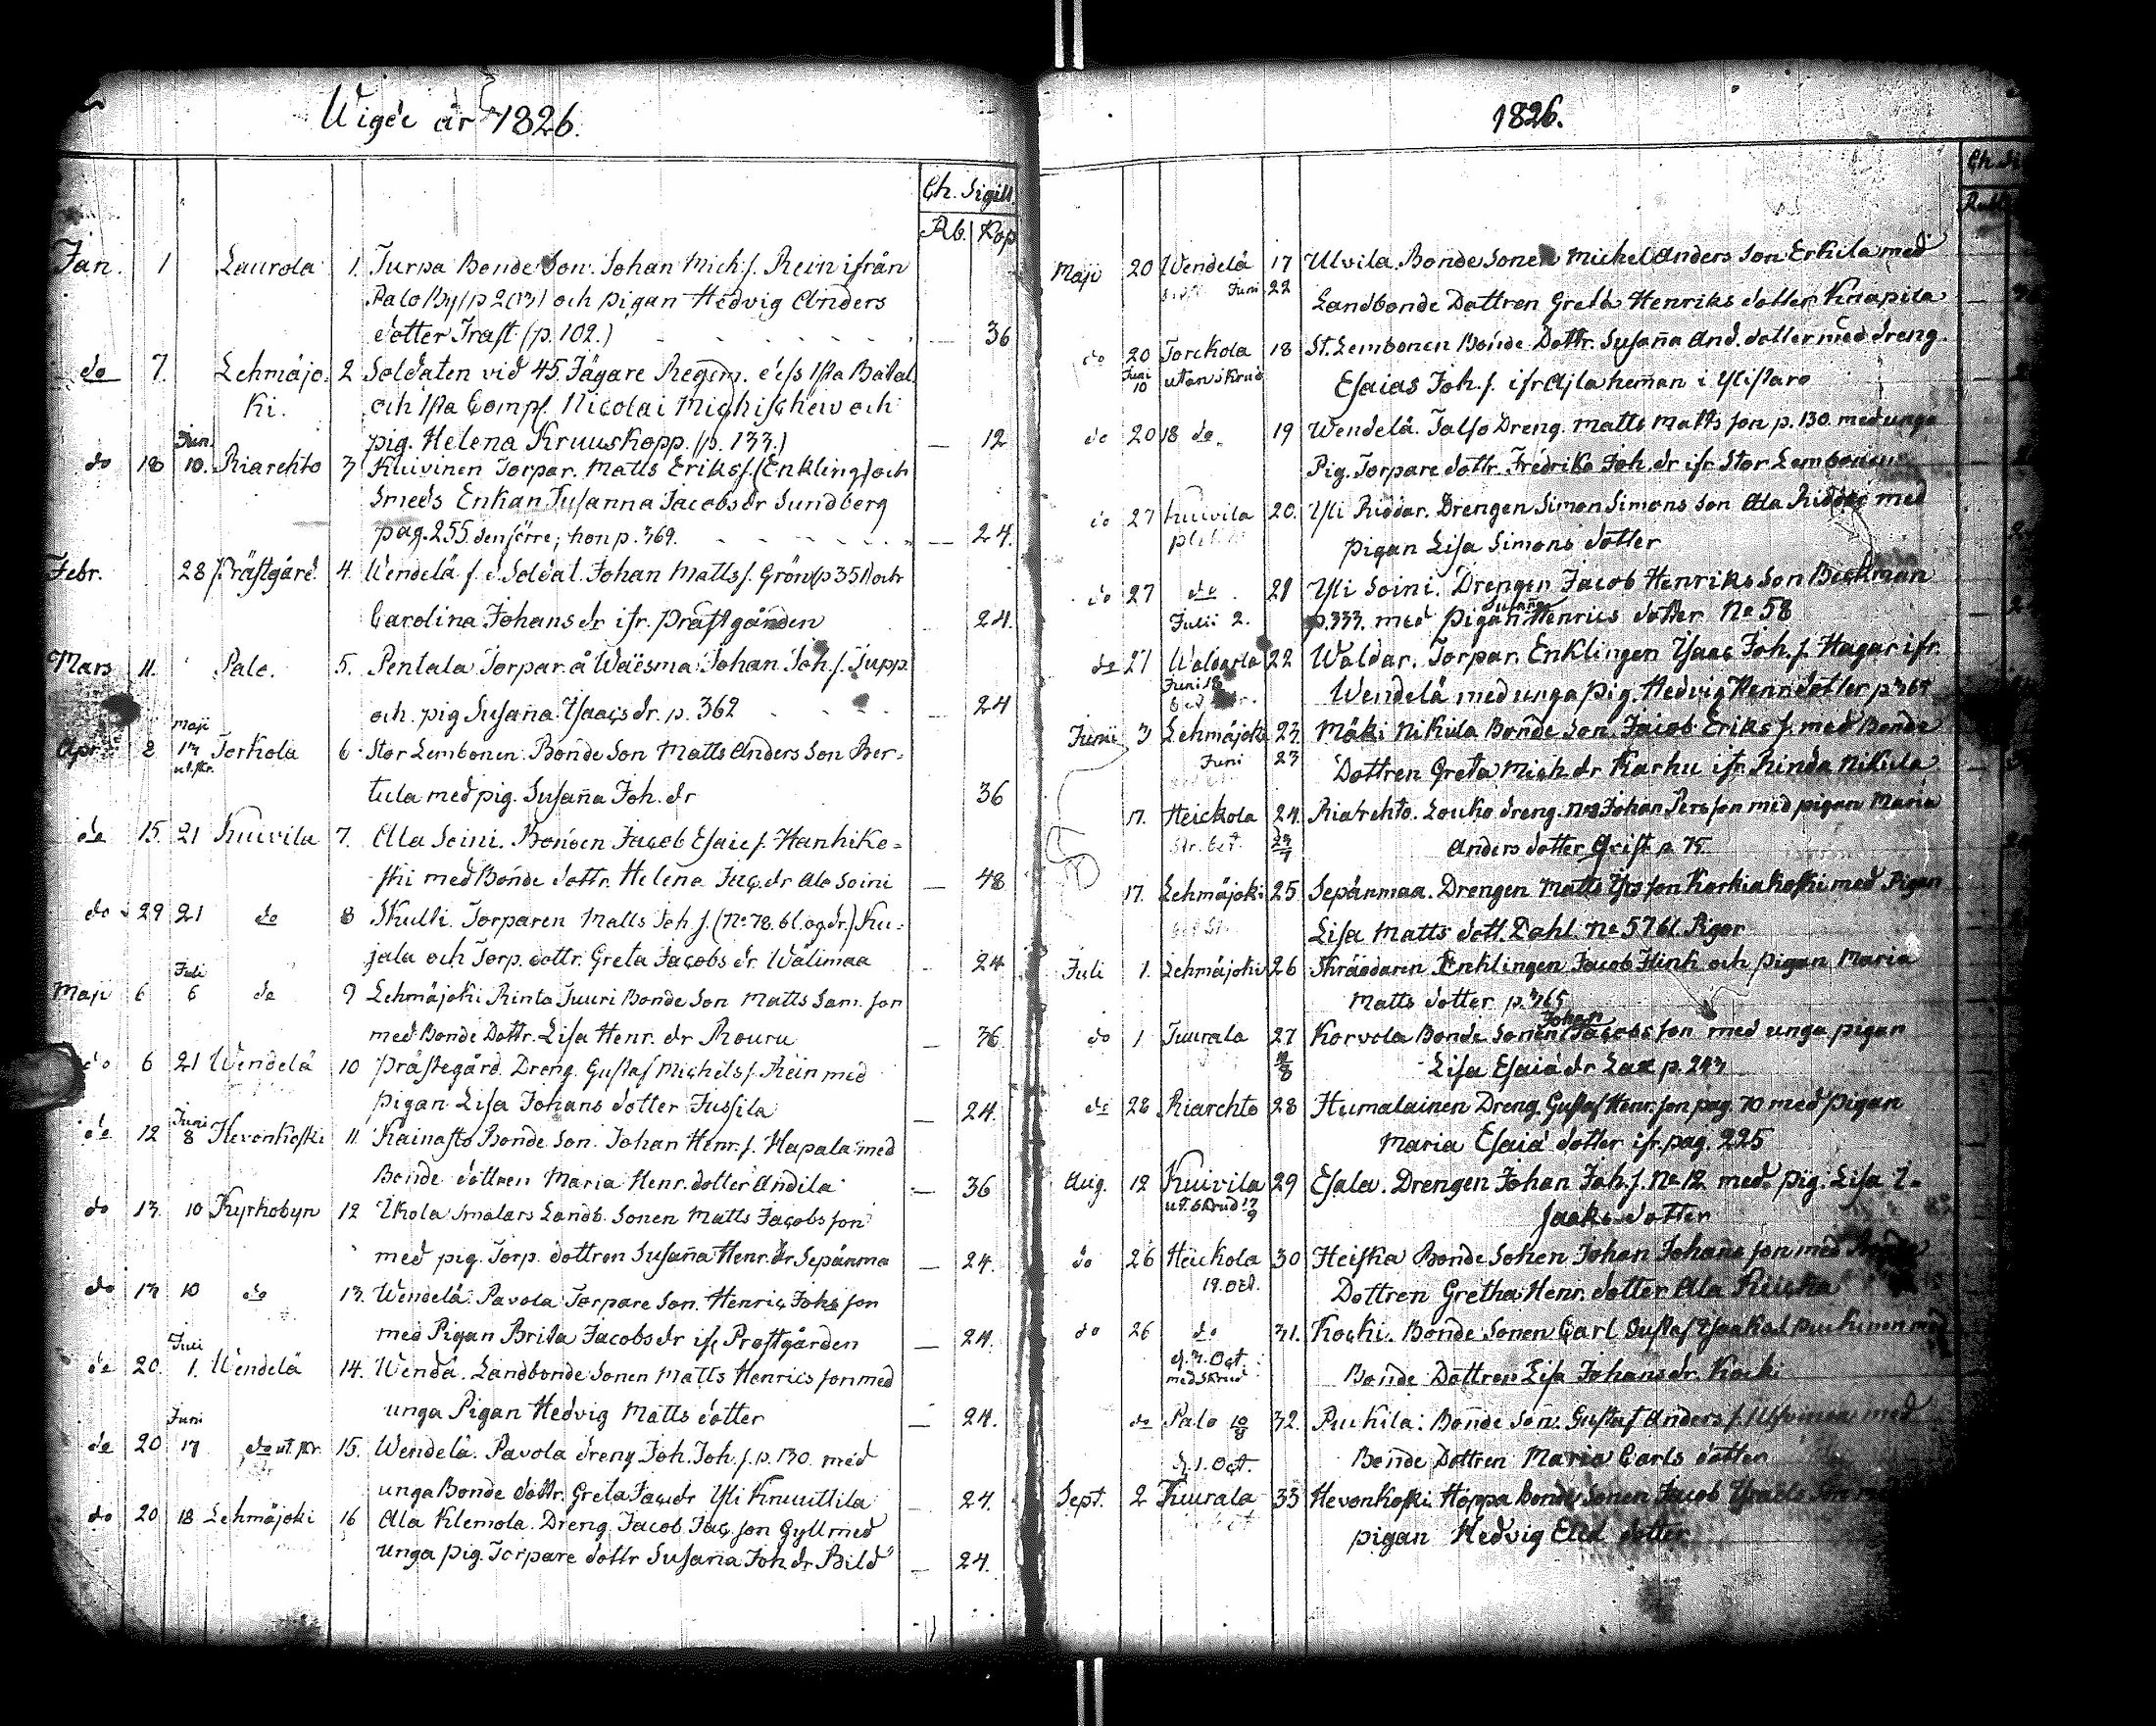 Wigde år 1826.
Ch. Sigill.
Rb. Kop
Jan. 1 Laurola 1. Turpa Bonde Son. Johan Mich. s. Rein ifrån
Palo By (p 213) och pigan Hedvig Anders
dotter Trast (p. 102.) — 36
do 7. Lehmäjo- 2 Soldaten vid 45 Jägare Regem. dess 1sta Batal.
ki. och 1sta Comp. Nicolai Michischew och
pig. Helena Kruuskopp. (p. 133.) — 12
Jun.
do 18 10. Riarehto 3 Kuivinen Torpar. Matts Eriks s. (Enkling) och
Smeds Enkan Susanna Jacobs dr Sundberg
pag. 255 den förre; hon p. 369. — 24.
Febr. 28 Prästgård. 4. Wendelä f. d. Soldat. Johan Matts s. Grön (p 351) och
Carolina Johans dr ifr. Prästgården 24.
Mars 11. Palo. 5. Pentala Torpar. å Waësma Johan Joh. s. Jupp.
och pig Susaña Isaacs dr. p. 362 — 24
Maji
Apr. 2 13 Torkola 6 Stor Lembonen. Bonde Son Matts Anders Son Ber-
ut. skr.
tula med pig. Susaña Joh. dr 36
do 15. 21 Kuivila 7. Ala Soini. Bonden Jacob Esaie s. Hanhiko-
ski med Bonde dottr. Helena Jac. dr Ala Soini — 48
do 29 21 do 8 Skulli. Torparen Matts Joh s. (No 78. bl. og. dr.) Ku-
jala och Torp. dottr. Greta Jacobs dr. Wälimaa 24
Juli
Maji 6 6 do 9 Lehmäjoki Rinta Juuri Bonde Son Matts Sam. son
med Bonde Dottr. Lisa Henr. dr Rouru — 36
do 6 21 Wendelä 10 Prästegård. Dreng. Gustaf Michels s. Rein med
pigan Lisa Johans dotter Jussila — 24.
Juni
do 12 8 Hevonkoski 11. Kainasto Bonde Son. Johan Henr. s. Hapala med
Bonde dottren Maria Henr. dotter Andila — 36
do 13. 10 Kyrkobyn 12 Ikola Smalars Landb. Sonen Matts Jacobs son
med pig. Torp. dottren Susaña Henr. dr. Sepänma — 24.
do 13 10 do 13. Wendelä. Pavola Torpare Son. Henric Johs son
med Pigan Brita Jacobs dr ifr Prostgården — 24.
Juli
do 20. 1. Wendelä 14. Wendä. Landbonde Sonen Matts Henrics son med
unga Pigan Hedvig Matts dotter — 24.
Juni
do 20 17 do ut. skr. 15. Wendelä. Pavola dreng Joh. Joh. s. p. 130 med
unga Bonde dottr. Greta Jac. dr Yli Knuuttila — 24.
do 20 18 Lehmäjoki 16 Ala Klemola. Dreng. Jacob Jac. son Gyll med
unga pig. Torpare dottr Susaña Joh dr Bild — 24.
1826.
Maji 20 Wendelä 17 Ulvila. Bonde Sonen Michel Anders Son Erkila med
Juni 22 Landbonde Dottren Greta Henriks dotter Knapila
do 20 Torckola 18 St. Lembonen Bonde Dottr. Susaña And. dotter med dreng.
Juni 10 utan skrud Esaias Joh. s. ifr Ajla heman i Ylistaro
do 20 18 do. 19 Wendelä. Talso Dreng. Matts Matts son p. 130. med unga
Pig. Torpare dottr. Fredrika Joh. dr ifr. Stor Lembonen
do 27 Kuivila 20. Yli Riddar. Drengen Simon Simons Son Ala Riddar med
pigan Lisa Simons dotter
do 27 do. 21 Yli Soini. Drengen Jacob Henriks Son Beckman
Susaña
Julii 2. p. 333. med Pigan Henrics dotter No 58
do 27 Waldarla 22 Waldar. Torpar. Enklingen Isaac Joh. s. Hagar ifr.
Juni 18 Wendelä med unga pig. Hedvig Henr dotter p 365
Junii 3 Lehmäjoki 23. Mäki Nikula Bonde Son. Jacob Eriks s. med Bonde
Juni 23 Dottren Greta Mich. dr Karhu ifr. Rinda Nikula
17. Heickola 24. Riarehto. Louko dreng. Johan Pers son med pigan Maria
Str. bet. Anders dotter Qvist p. 75.
17. Lehmäjoki 25 Sepänmaa. Drengen Matts son Korkiakoski med Pigan
Lisa Matts dott. Dahl. No 57 bl. Pigor
Juli 1. Lehmäjoki 26 Skräddaren Enklingen Jacob Flink och pigan Maria
Matts dotter p. 365
Johan
do 1 Tuurala 27 Korvola Bonde Sonen Jacobs son med unga pigan
Lisa Esaiæ dr Lax p. 243
do 28 Riarehto 28 Humalainen Dreng. Gustaf Henr. son pag. 70 med Pigan
Maria Esaiæ dotter ifr. pag. 225
Aug. 12 Kuivila 29 Esala. Drengen Johan Joh. s. No 12 med pig. Lisa I-
ut. skrud saaks dotter
do 26 Heickola 30 Heiska Bonde Sonen Johan Johans son med Bonde
19. Oct. Dottren Gretha Henr. dotter Ala Reicka
do 26 do 31. Kocki. Bonde Sonen Carl Gustaf Isaaks Purkinen med
Oct.
med skrud Bonde Dottren Lisa Johans dr. Kocki
do Palo 32. Purkila: Bonde Son. Gustaf Anders s. med
d. 1. Oct. Bonde Dottren Maria Carls dotter
Sept. 2 Tuurala 33 Hevonkoski Hoppa Bonde Sonen Jacob Israels
pigan Hedvig dotter